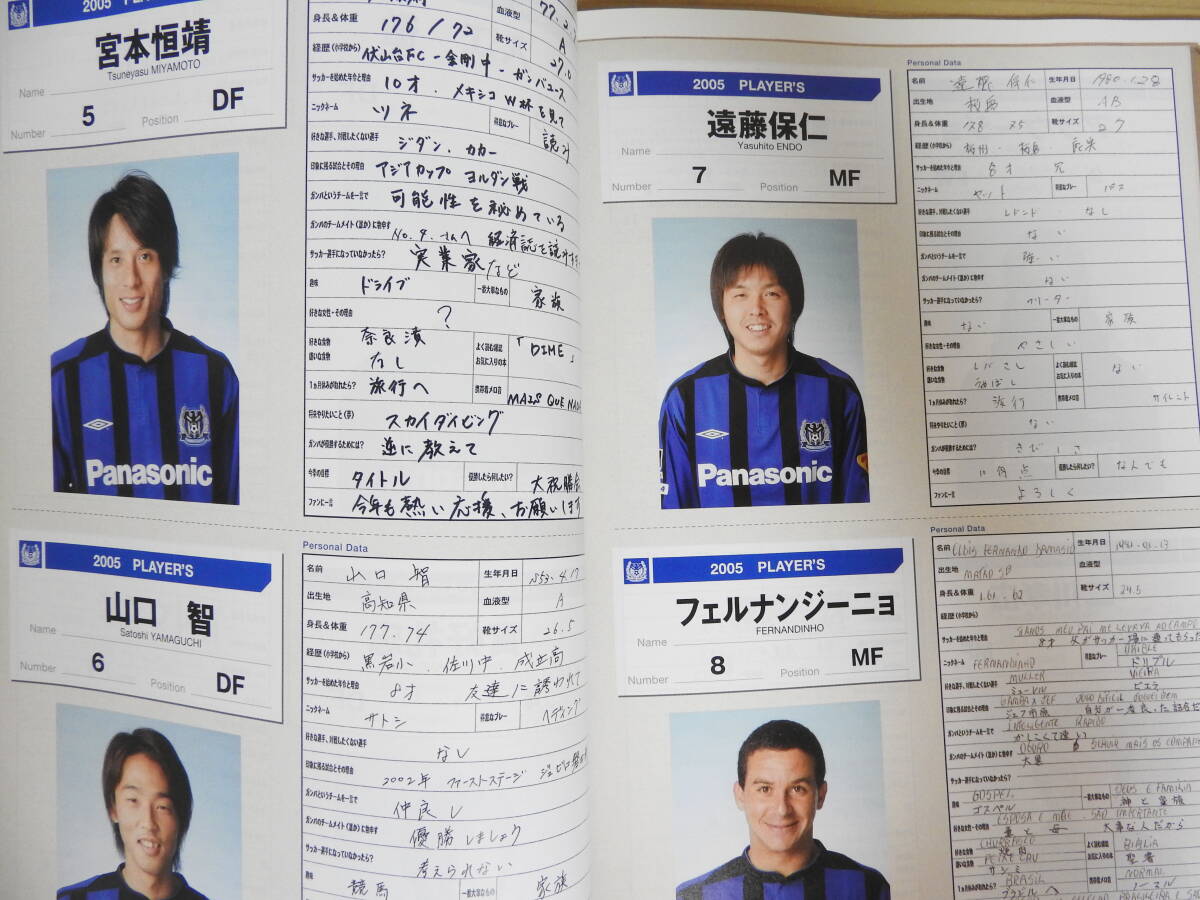 2005 PLAYER'S
宮本恒靖
Tsuneyasu MIYAMOTO
Name
Number 5 Position DF
Panasonic
身長&体重 176 / 72 靴サイズ 27.0
血液型 A
経歴(小学校から) 伏山台FC - 金剛中 - ガンバユース
サッカーを始めた年令と理由 10才. メキシコW杯を見て
ニックネーム ツネ 得意なプレー 読み
好きな選手、対戦したくない選手 ジダン. カカー
印象に残る試合とその理由 アジアカップ ヨルダン戦
ガンバというチームを一言で 可能性を秘めている
ガンバのチームメイト(誰か)に物申す
サッカー選手になっていなかったら? 実業家など
趣味 ドライブ 一番大事なもの 家族
好きな女性・その理由 ?
好きな食物 奈良漬
嫌いな食物 なし
よく読む雑誌 お気に入りの本 「DIME」
1ヵ月休みが取れたら? 旅行へ 携帯着メロ音
将来やりたいこと(夢) スカイダイビング
ガンバが優勝するためには? 逆に教えて
今季の目標 タイトル 優勝したら何したい?
ファンに一言 今年も熱い応援、お願いします
2005 PLAYER'S
山口 智
Satoshi YAMAGUCHI
Name
Number 6 Position DF
Personal Data
名前 山口 智 生年月日 S53.4.17
出生地 高知県 血液型 A
身長&体重 177. 74 靴サイズ 26.5
経歴(小学校から) 黒岩小. 佐川中. 成立高
サッカーを始めた年令と理由 8才 友達に誘われて
ニックネーム サトシ 得意なプレー ヘディング
好きな選手、対戦したくない選手 なし
印象に残る試合とその理由 2002年 ファーストステージ
ガンバというチームを一言で 仲良し
ガンバのチームメイト(誰か)に物申す 優勝しましょう
サッカー選手になっていなかったら? 考えられない
趣味 競馬 一番大事なもの 家族
2005 PLAYER'S
遠藤保仁
Yasuhito ENDO
Name
Number 7 Position MF
Panasonic
Personal Data
名前 遠藤 保仁 生年月日 1980.1.28
出生地 血液型 AB
身長&体重 178 75 靴サイズ 27
経歴(小学校から)
サッカーを始めた年令と理由 兄
ニックネーム ヤット 得意なプレー パス
好きな選手、対戦したくない選手 レドンド なし
印象に残る試合とその理由 ない
ガンバというチームを一言で
ガンバのチームメイト(誰か)に物申す ない
サッカー選手になっていなかったら? フリーター
趣味 ない 一番大事なもの 家族
好きな女性・その理由 やさしい
好きな食物 レバさし
嫌いな食物 梅ぼし
よく読む雑誌 お気に入りの本 ない
1ヵ月休みが取れたら? 旅行 携帯着メロ音 サイレント
将来やりたいこと(夢) ない
ガンバが優勝するためには?
今季の目標 10得点 優勝したら何したい? なんでも
ファンに一言 よろしく
2005 PLAYER'S
フェルナンジーニョ
FERNANDINHO
Name
Number 8 Position MF
Personal Data
名前 生年月日
出生地 血液型
身長&体重 1.61. 62 靴サイズ 24.5
経歴(小学校から)
サッカーを始めた年令と理由
ニックネーム FERNANDINHO 得意なプレー ドリブル
好きな選手、対戦したくない選手 MULLER VIEIRA
ミューレル ビエラ
印象に残る試合とその理由
ガンバというチームを一言で INTELIGENTE RAPIDO
かしこくて速い
ガンバのチームメイト(誰か)に物申す
大黒
サッカー選手になっていなかったら?
趣味 GOSPEL 一番大事なもの DEUS E FAMILIA
ゴスペル 神と家族
好きな女性・その理由 妻と母 大事な人だから
好きな食物 CHURRASCO
嫌いな食物 サシミ
よく読む雑誌 お気に入りの本 BIBLIA
聖書
1ヵ月休みが取れたら? BRASIL 携帯着メロ音 NORMAL
ブラジルへ ノーマル